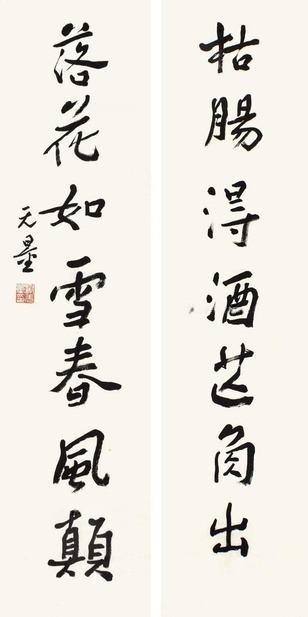 枯腸得酒芒角出
落花如雪春風顛
天量